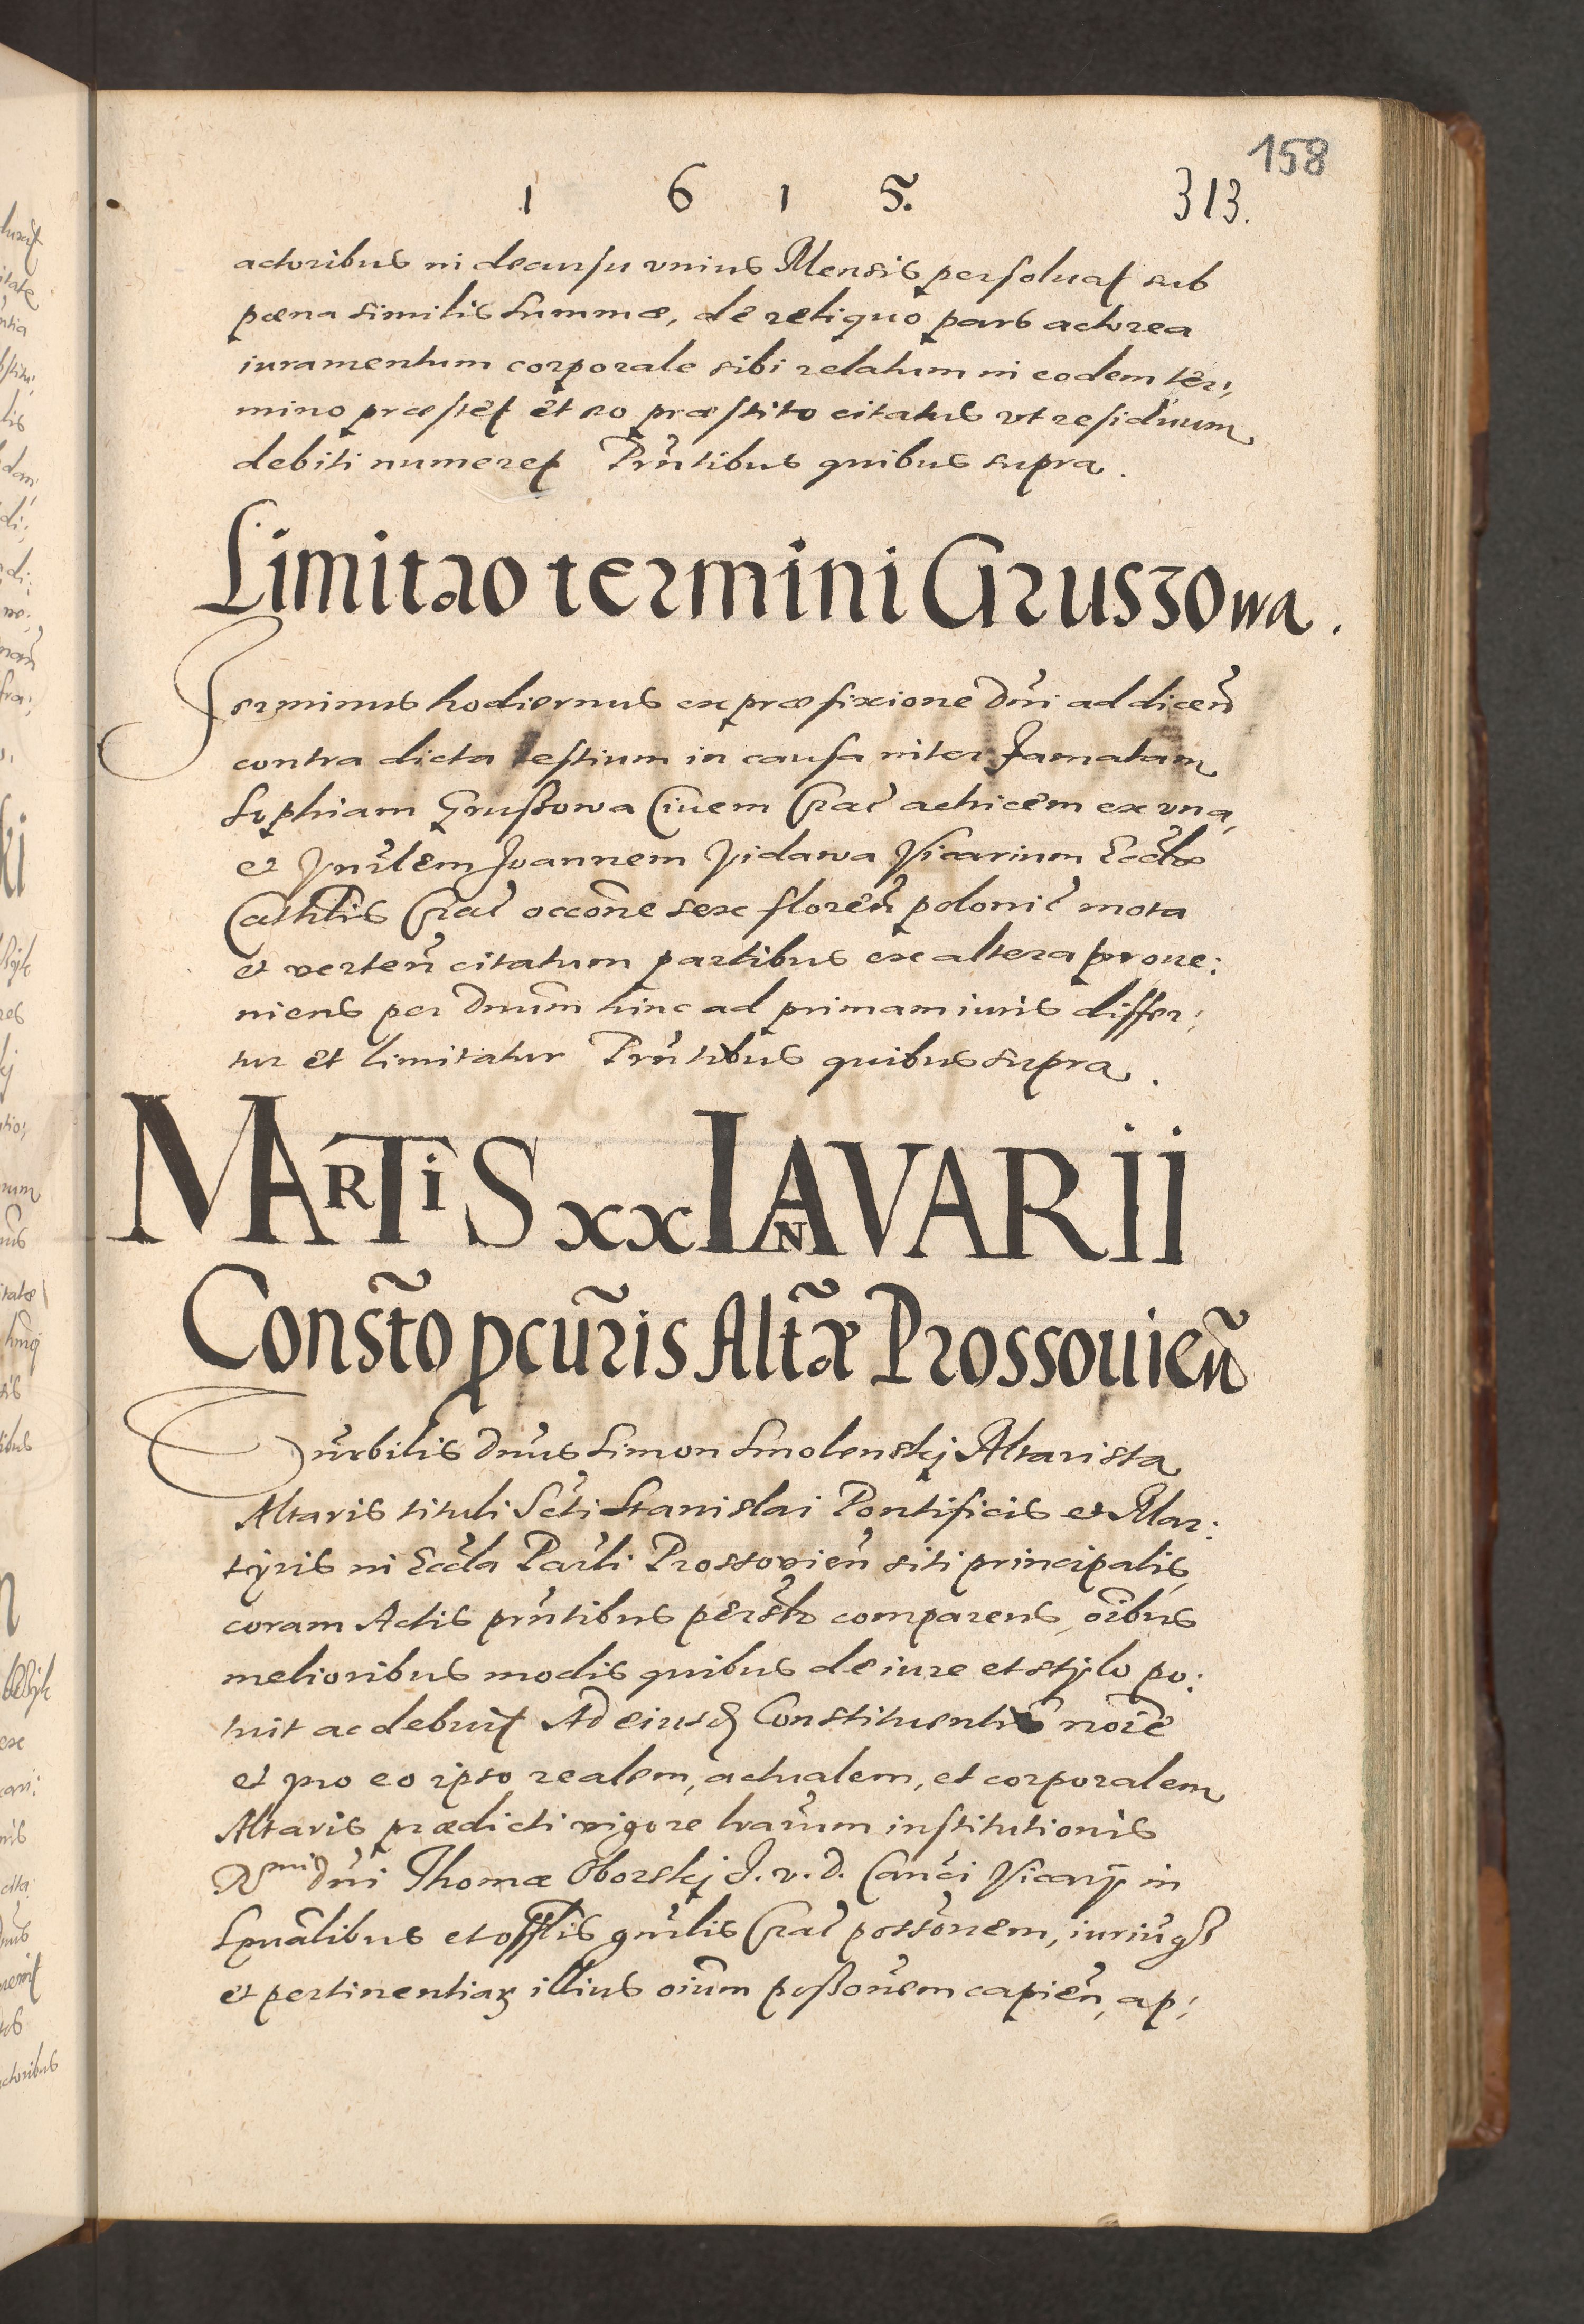 158
1 6 1 5. 313.
actoribus in decursu vnius Mensis persoluat sub
pœna similis summæ, de reliquo pars actorea
iuramentum corporale sibi relatum in eodem ter,
mino præstet et eo præstito citatus vt residuum
debiti numeret Pñtibus quibus supra.
Limitao termini Gruszowa.
Terminus hodiernus ex præfixione Dñi ad dicen̄
contra dicta testium in causa inter Famatam
Sophiam Grussowa Ciuem Crac̄ actricem ex vna,
et Joannem Vidawa Vicarium Eccl̄æ
Cathlis Crac̄ occōne sex floren̄ polonic̄ mota
et verten̄ citatum partibus ex altera proue:
niens per Dnum hinc ad primam iuris differ:
tur et limitatur Pñtibus quibus supra.
MARTiS xx IANVARII
Consto̅ pcur̃is Altãr Prossouien̄
Dnus Simon Smolenskj Altarista
Altaris tituli Scti Stanislai Pontificis et Mar:
tyris in Eccla Par̃li Prossovien̄ siti principalis
coram Actis pñtibus persl̄r comparens, oībus
melioribus modis quibus de iure et stylo po:
tuit ac debuit Ad eiusd Constituentis noīe
et pro eo ipso realem, actualem, et corporalem
Altaris prædicti vigore lrarum institutionis
Rmi Dñi Thomæ Oborskj J. v. d. Canci Vicarij in
Spuãlibus et offlis gñrlis Crac̄ possōnem, iuriūqȝ
et pertinentiaꝝ illius oium possōnem capien̄, ap: